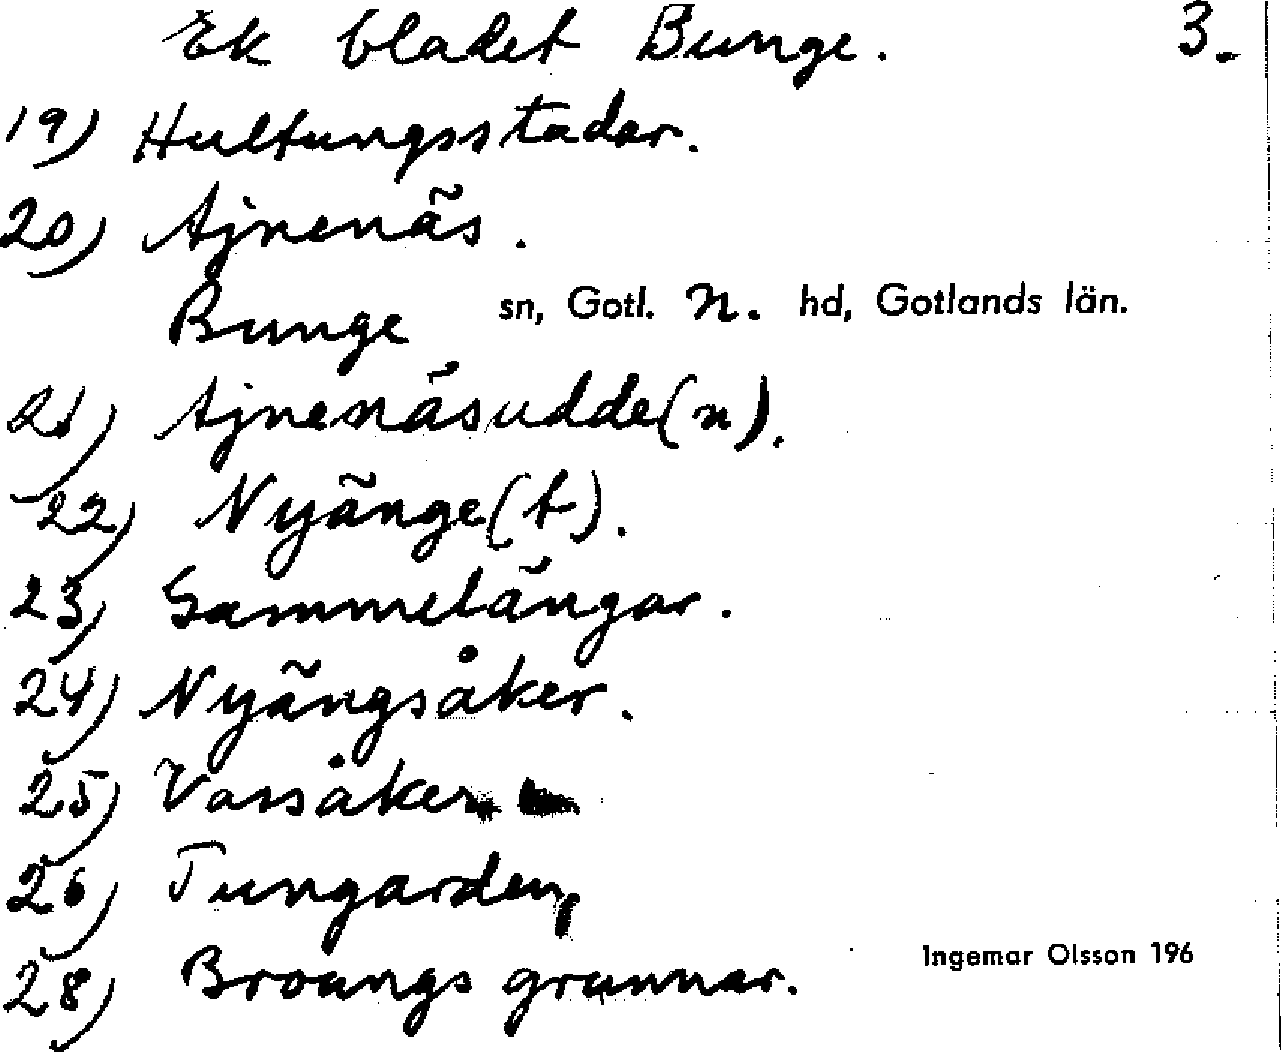 Ek bladet Bunge. 3.
19) Hultungsstadar.
20) Ajnenäs.
Bunge sn, Gotl. N. hd, Gotlands län.
21) Ajnenäsudde(n).
22) Nyänge(t).
23) Sammelängar.
24) Nyängsåker.
25) Varsåker
26) Tungarden,
28) Broungs grunnar.
Ingemar Olsson 196